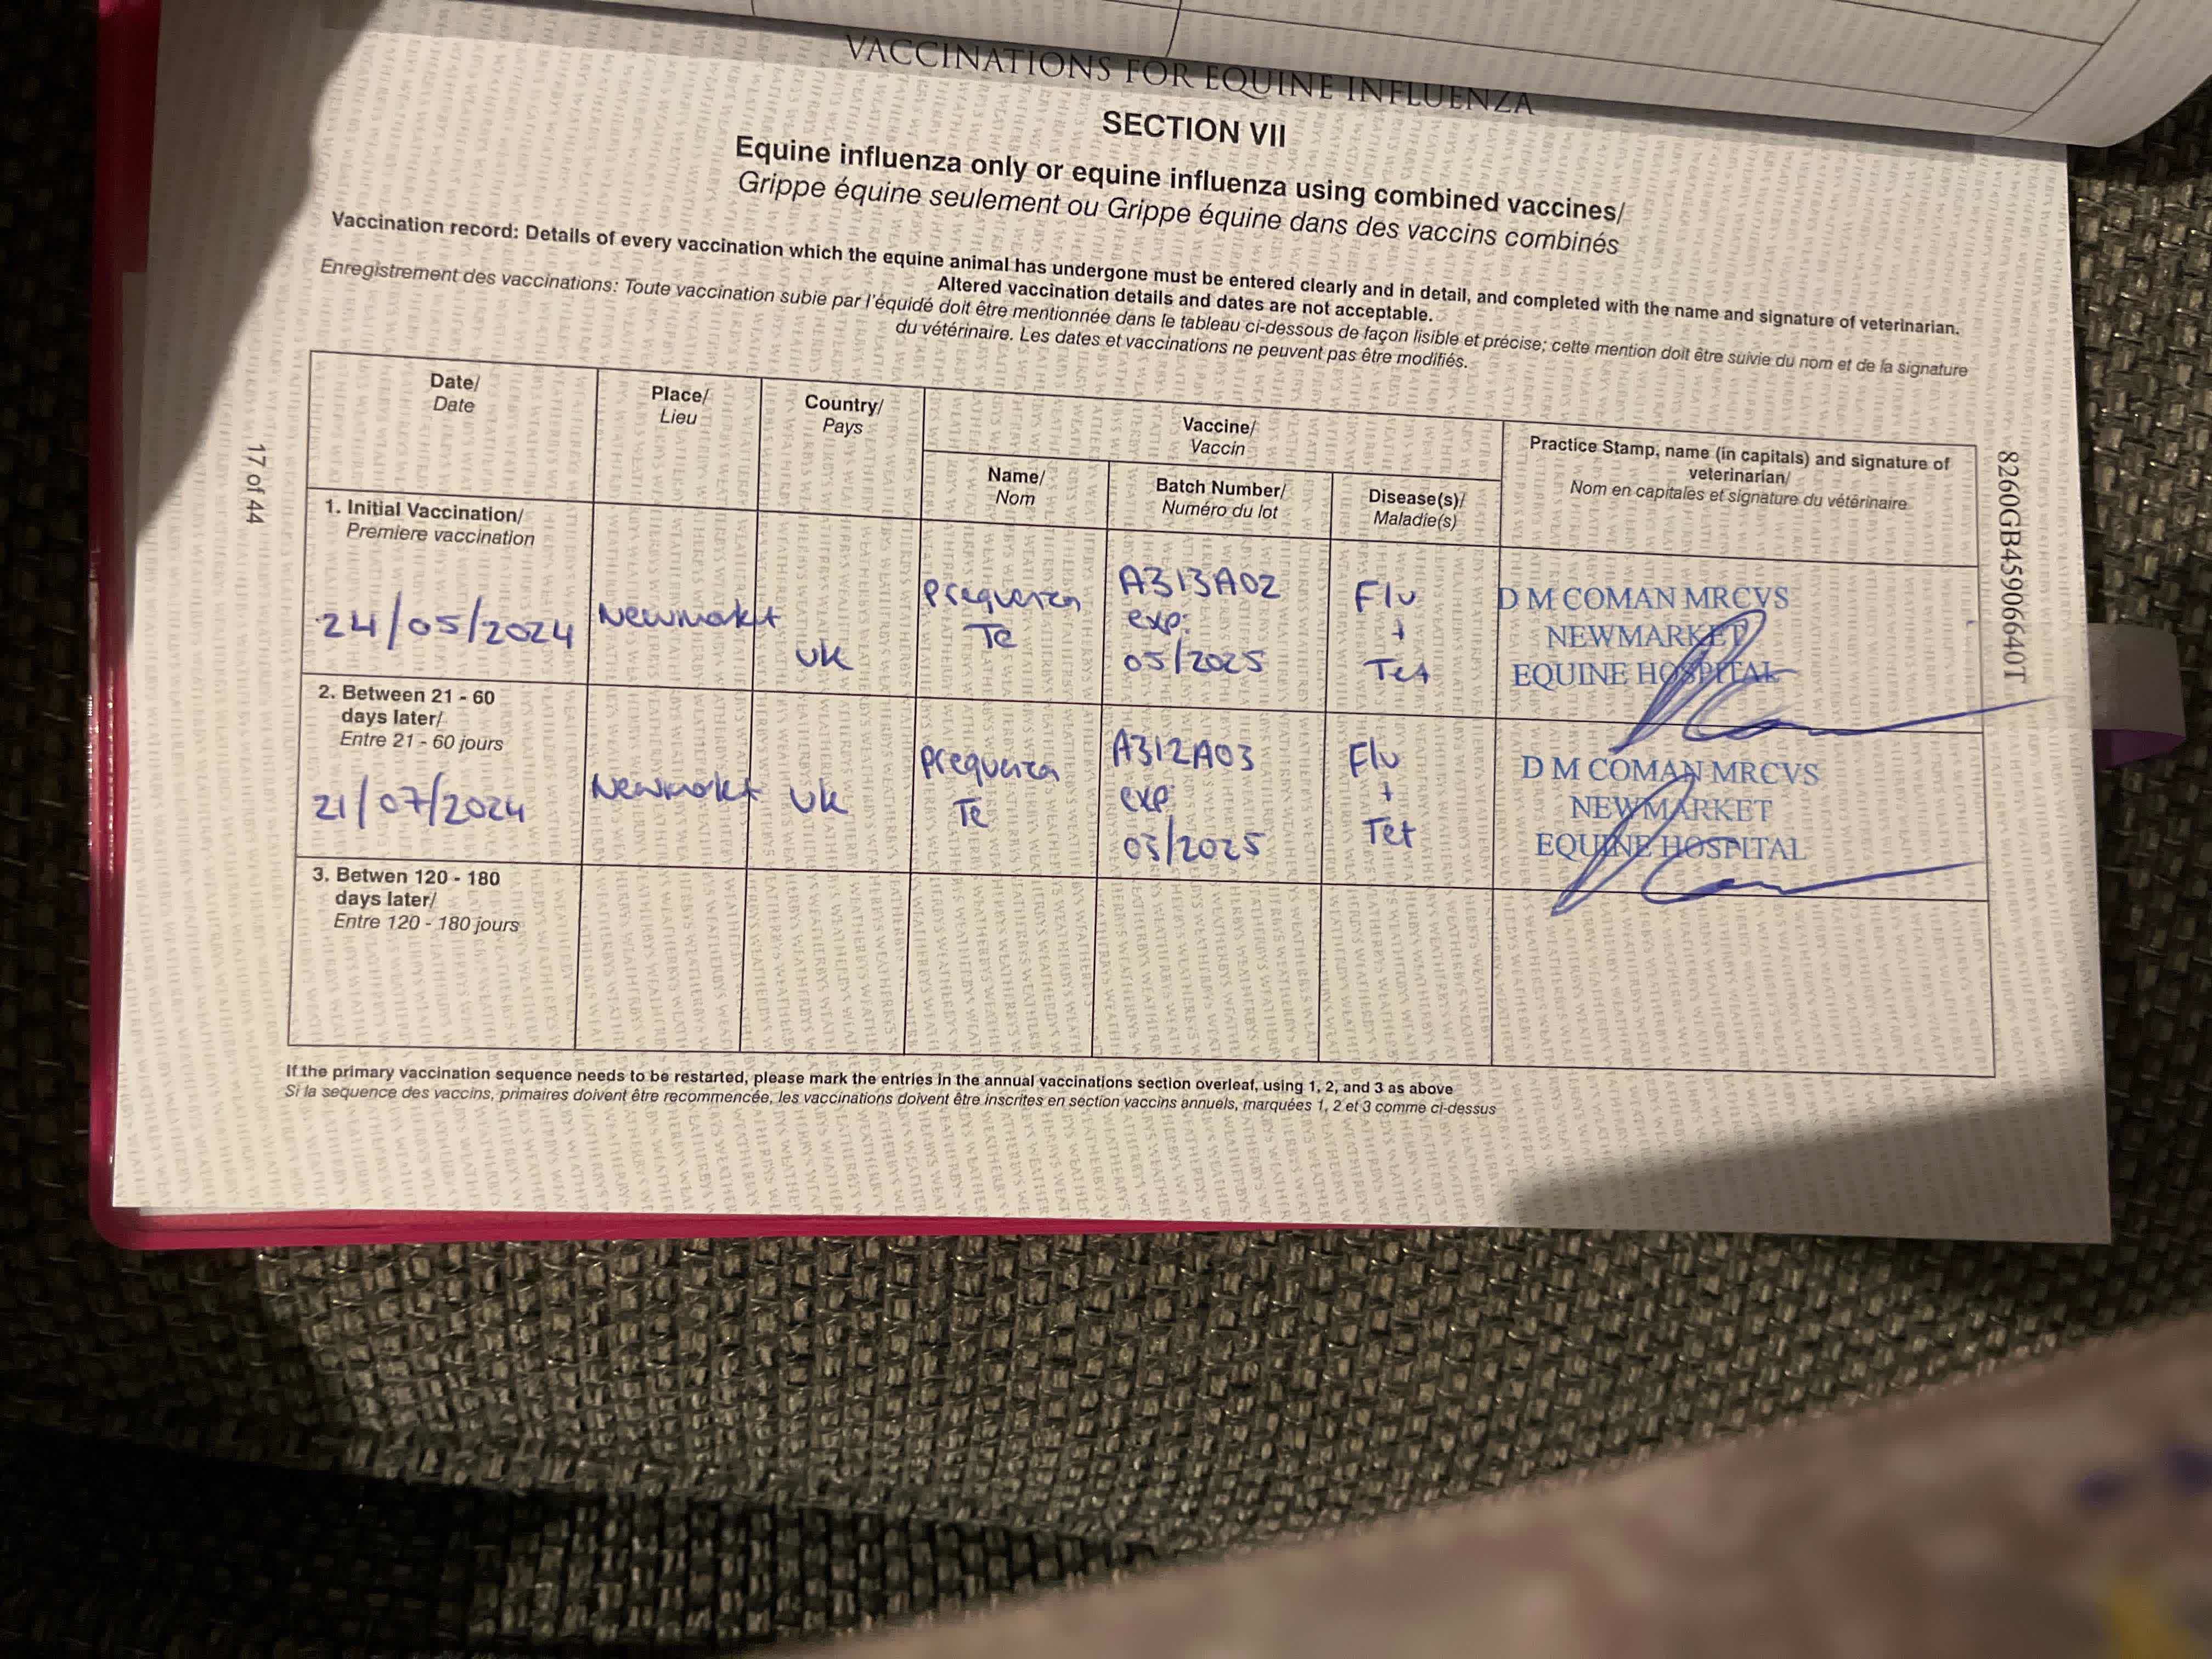 VACCINATIONS FOR EQUINE INFLUENZA
SECTION VII
Equine influenza only or equine influenza using combined vaccines/
Grippe équine seulement ou Grippe équine dans des vaccins combinés
Vaccination record: Details of every vaccination which the equine animal has undergone must be entered clearly and in detail, and completed with the name and signature of veterinarian.
Altered vaccination details and dates are not acceptable.
Enregistrement des vaccinations: Toute vaccination subie par l'équidé doit être mentionnée dans le tableau ci-dessous de façon lisible et précise; cette mention doit être suivie du nom et de la signature
du vétérinaire. Les dates et vaccinations ne peuvent pas être modifiés.
Date/
Date
Place/
Lieu
Country/
Pays
Vaccine/
Vaccin
Name/
Nom
Batch Number/
Numéro du lot
Disease(s)/
Maladie(s)
Practice Stamp, name (in capitals) and signature of
veterinarian/
Nom en capitales et signature du vétérinaire
1. Initial Vaccination/
Premiere vaccination
24/05/2024
Newmarkt
UK
Prequenza
Te
A313A02
exp:
05/2025
Flu
+
Tet
D M COMAN MRCVS
NEWMARKET
EQUINE HOSPITAL
2. Between 21 - 60
days later/
Entre 21 - 60 jours
21/07/2024
Newmarkt
UK
Prequenza
Te
A312A03
exp
03/2025
Flu
+
Tet
D M COMAN MRCVS
NEWMARKET
EQUINE HOSPITAL
3. Betwen 120 - 180
days later/
Entre 120 - 180 jours
If the primary vaccination sequence needs to be restarted, please mark the entries in the annual vaccinations section overleaf, using 1, 2, and 3 as above
Si la sequence des vaccins, primaires doivent être recommencée, les vaccinations doivent être inscrites en section vaccins annuels, marquées 1, 2 et 3 comme ci-dessus
17 of 44
8260GB45906640T